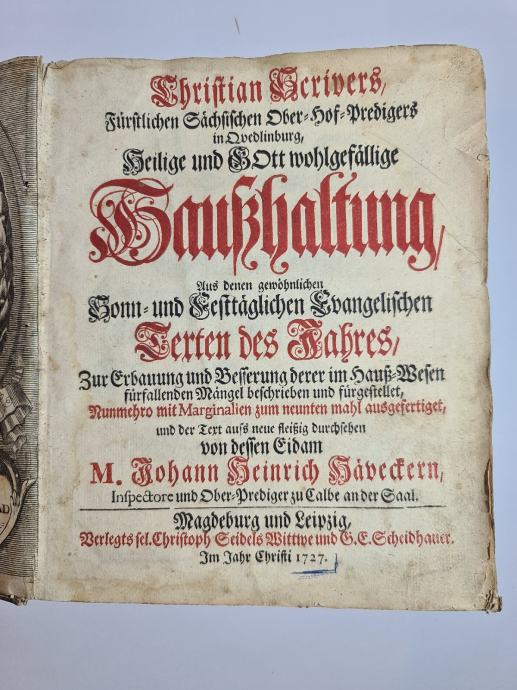 Christian Scrivers,
Fürstlichen Sächsischen Ober-Hof-Predigers
in Qvedlinburg,
Heilige und GOtt wohlgefällige
Haußhaltung,
Aus denen gewöhnlichen
Sonn- und Festtäglichen Evangelischen
Texten des Jahres,
Zur Erbauung und Besserung derer im Hauß-Wesen
fürfallenden Mängel beschrieben und fürgestellet,
Nunmehro mit Marginalien zum neunten mahl ausgefertiget,
und der Text aufs neue fleißig durchsehen
von dessen Eidam
M. Johann Heinrich Häveckern,
Inspectore und Ober-Prediger zu Calbe an der Saal.
Magdeburg und Leipzig,
Verlegts sel. Christoph Seidels Wittwe und G. E. Scheidhauer.
Im Jahr Christi 1727.